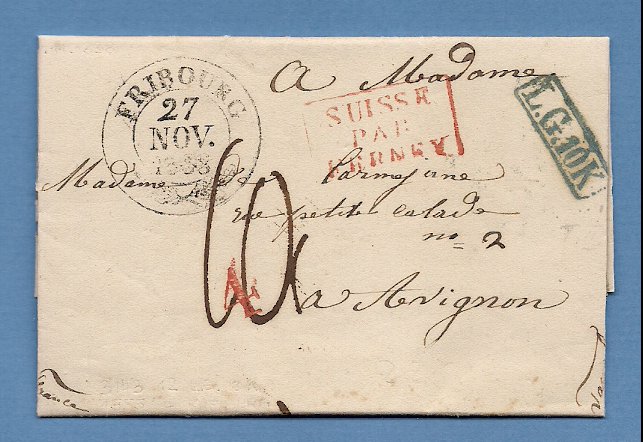 FRIBOURG
27
NOV.
1838
A Madame
SUISSE
PAR
FERNEY
L.G.10K
Madame de
rue petite calade
no 2
A
a Avignon
France